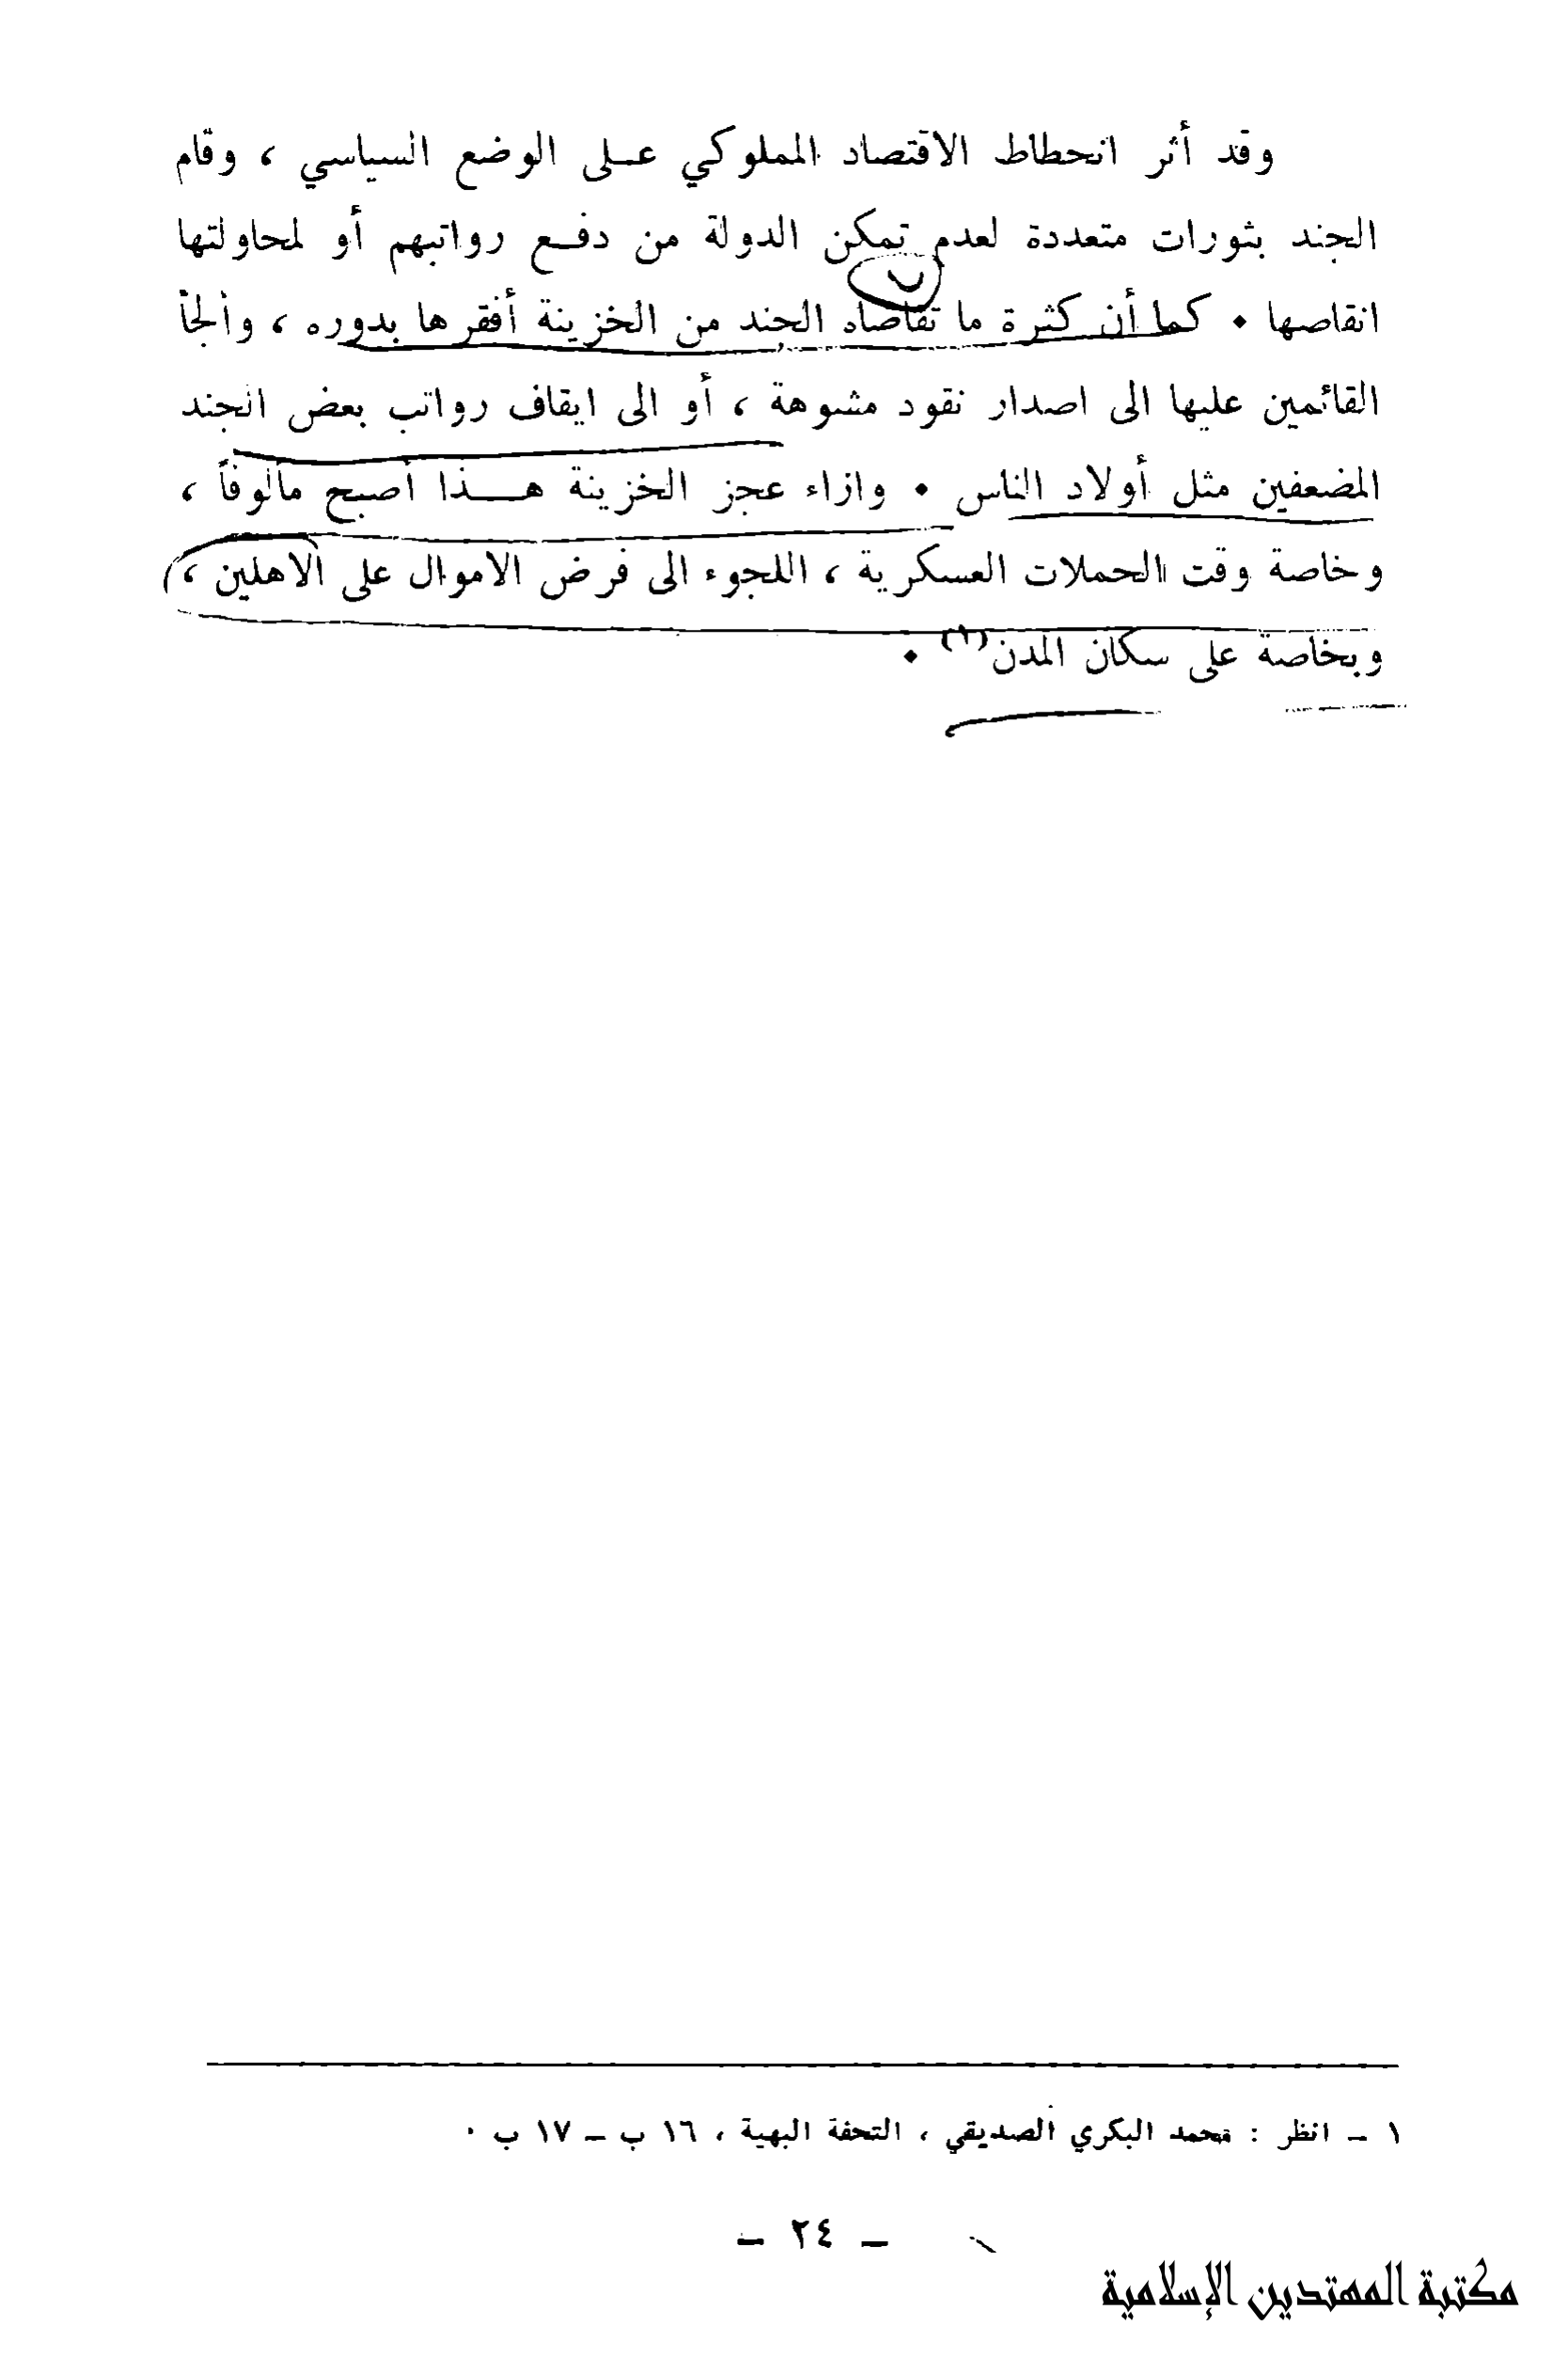 وقد أثر انحطاط الاقتصاد المملوكي عـلى الوضع السياسي ، وقام
الجند بثورات متعددة لعدم تمكن الدولة من دفـع رواتبهم أو لمحاولتها
انقاصها ٠ كما أن كثرة ما تقاضاه الجند من الخزينة أفقرها بدوره ، وألجأ
القائمين عليها الى اصدار نقود مشوهة ، أو الى ايقاف رواتب بعض الجند
المضعفين مثل أولاد الناس ٠ وازاء عجز الخزينة هـــذا أصبح مألوفاً ،
وخاصة وقت الحملات العسكرية ، اللجوء الى فرض الاموال على الاهلين ،
وبخاصة على سكان المدن(١) ٠
١ ــ انظر : محمد البكري الصديقي ، التحفة البهية ، ١٦ ب ــ ١٧ ب ٠
ــ ٢٤ ــ
مكتبة المهتدين الإسلامية